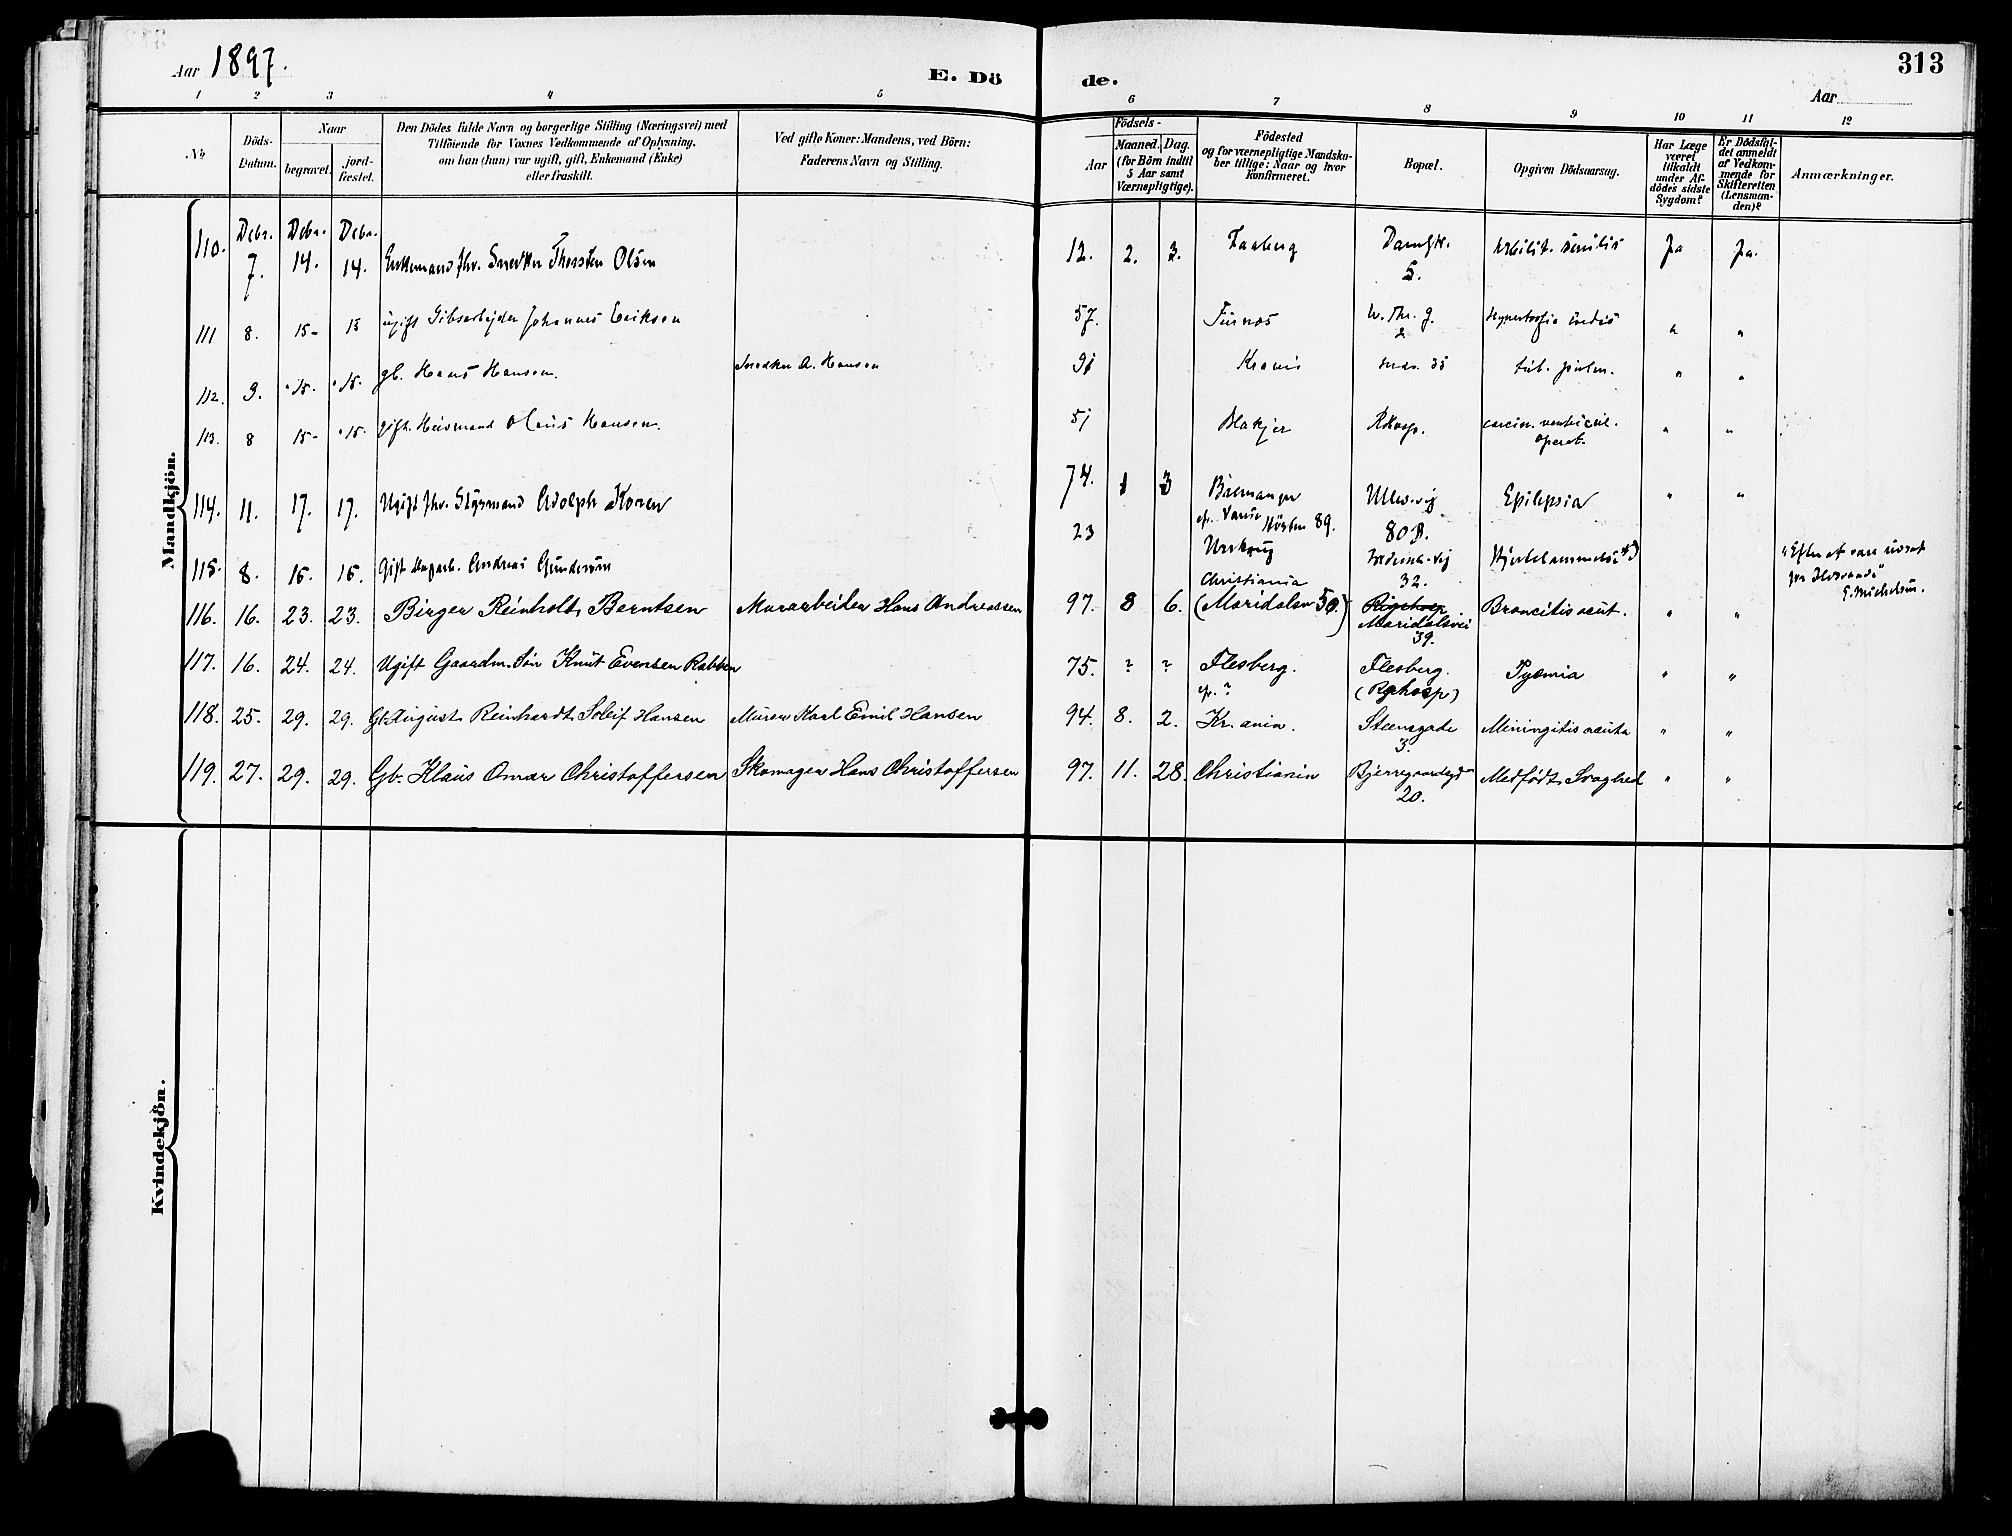 Aar 1897.
E. Dö de.
313
Aar
1 2 3 4 5 6 7 8 9 10 11 12
No
Döds-Datum.
Naar
begravet.
jord-fæstet.
Den Dödes fulde Navn og borgerlige Stilling (Næringsvei) med
Tilföiende for Voxnes Vedkommende af Oplysning,
om han (hun) var ugift, gift, Enkemand (Enke)
eller fraskilt.
Ved gifte Koner: Mandens, ved Börn:
Faderens Navn og Stilling.
Födsels-
Aar
Maaned. Dag.
(for Börn indtil
5 Aar samt
Værnepligtige).
Födested
og for værnepligtige Mandska-
ber tillige: Naar og hvor
konfirmeret.
Bopæl.
Opgiven Dödsaarsag.
Har Læge
været
tilkaldt
under Af-
dödes sidste
Sygdom?
Er Dödsfal-
det anmeldt
af Vedkom-
mende for
Skifteretten
(Lensman-
den)?
Anmærkninger.
Mandkjön.
Debr. Debr. Debr.
110. 7. 14. 14. Enkemand fhv. Snedker Thorsten Olsen 12. 2. 3. Faaberg Damstr. 5. debilit. senilis Ja Ja.
111 8. 15- 15 ugift Gibsarbejder Johannes Erikson 57. Furnos 2 "
112. 9. 15. 15. gb. Hans Hansen. Snedker A. Hansen 91 Krania 35 tub. pulm. " "
113. 8 15- 15. gift. Huismand Olaus Hansen. 51 Blakjer Rhosp. carcin. ventricul. " "
operat.
114. 11. 17. 17. Ugift fhv. Styrmand Adolph Koren 74. 1 3 Ullev.vej Epilepsia " "
89. 80 B.
115. 8. 16. 16. Gift Andreas Gundersen 23 Urskoug 32. Hjertelammelse *)
"Efter
116. 16. 23. 23. Birger Reinholdt Berntsen Murarbeider Hans Andreassen 97. 8 6. Christiania
(Maridalsv 50.) Rigshosp. Broncitis acut. " "
Maridalsvei
39.
117. 16. 24. 24. Ugift Gaardm. Søn Knut Evensen Rabben 75. ? ? Flesberg. Flesberg. Pyæmia " "
? (Rghosp)
118. 25. 29. 29. Gb. August Reinhardt Soleif Hansen Murer Karl Emil Hansen 94. 8. 2. Kr.ania. Steensgade Miningitis acuta " "
3.
119. 27. 29. 29. Gb. Klaus Omar Christoffersen Skomager Hans Christoffersen 97. 11. 28. Christiania Bjerregaardsgd Medfödt Svaghed " "
20.
Kvindekjön.